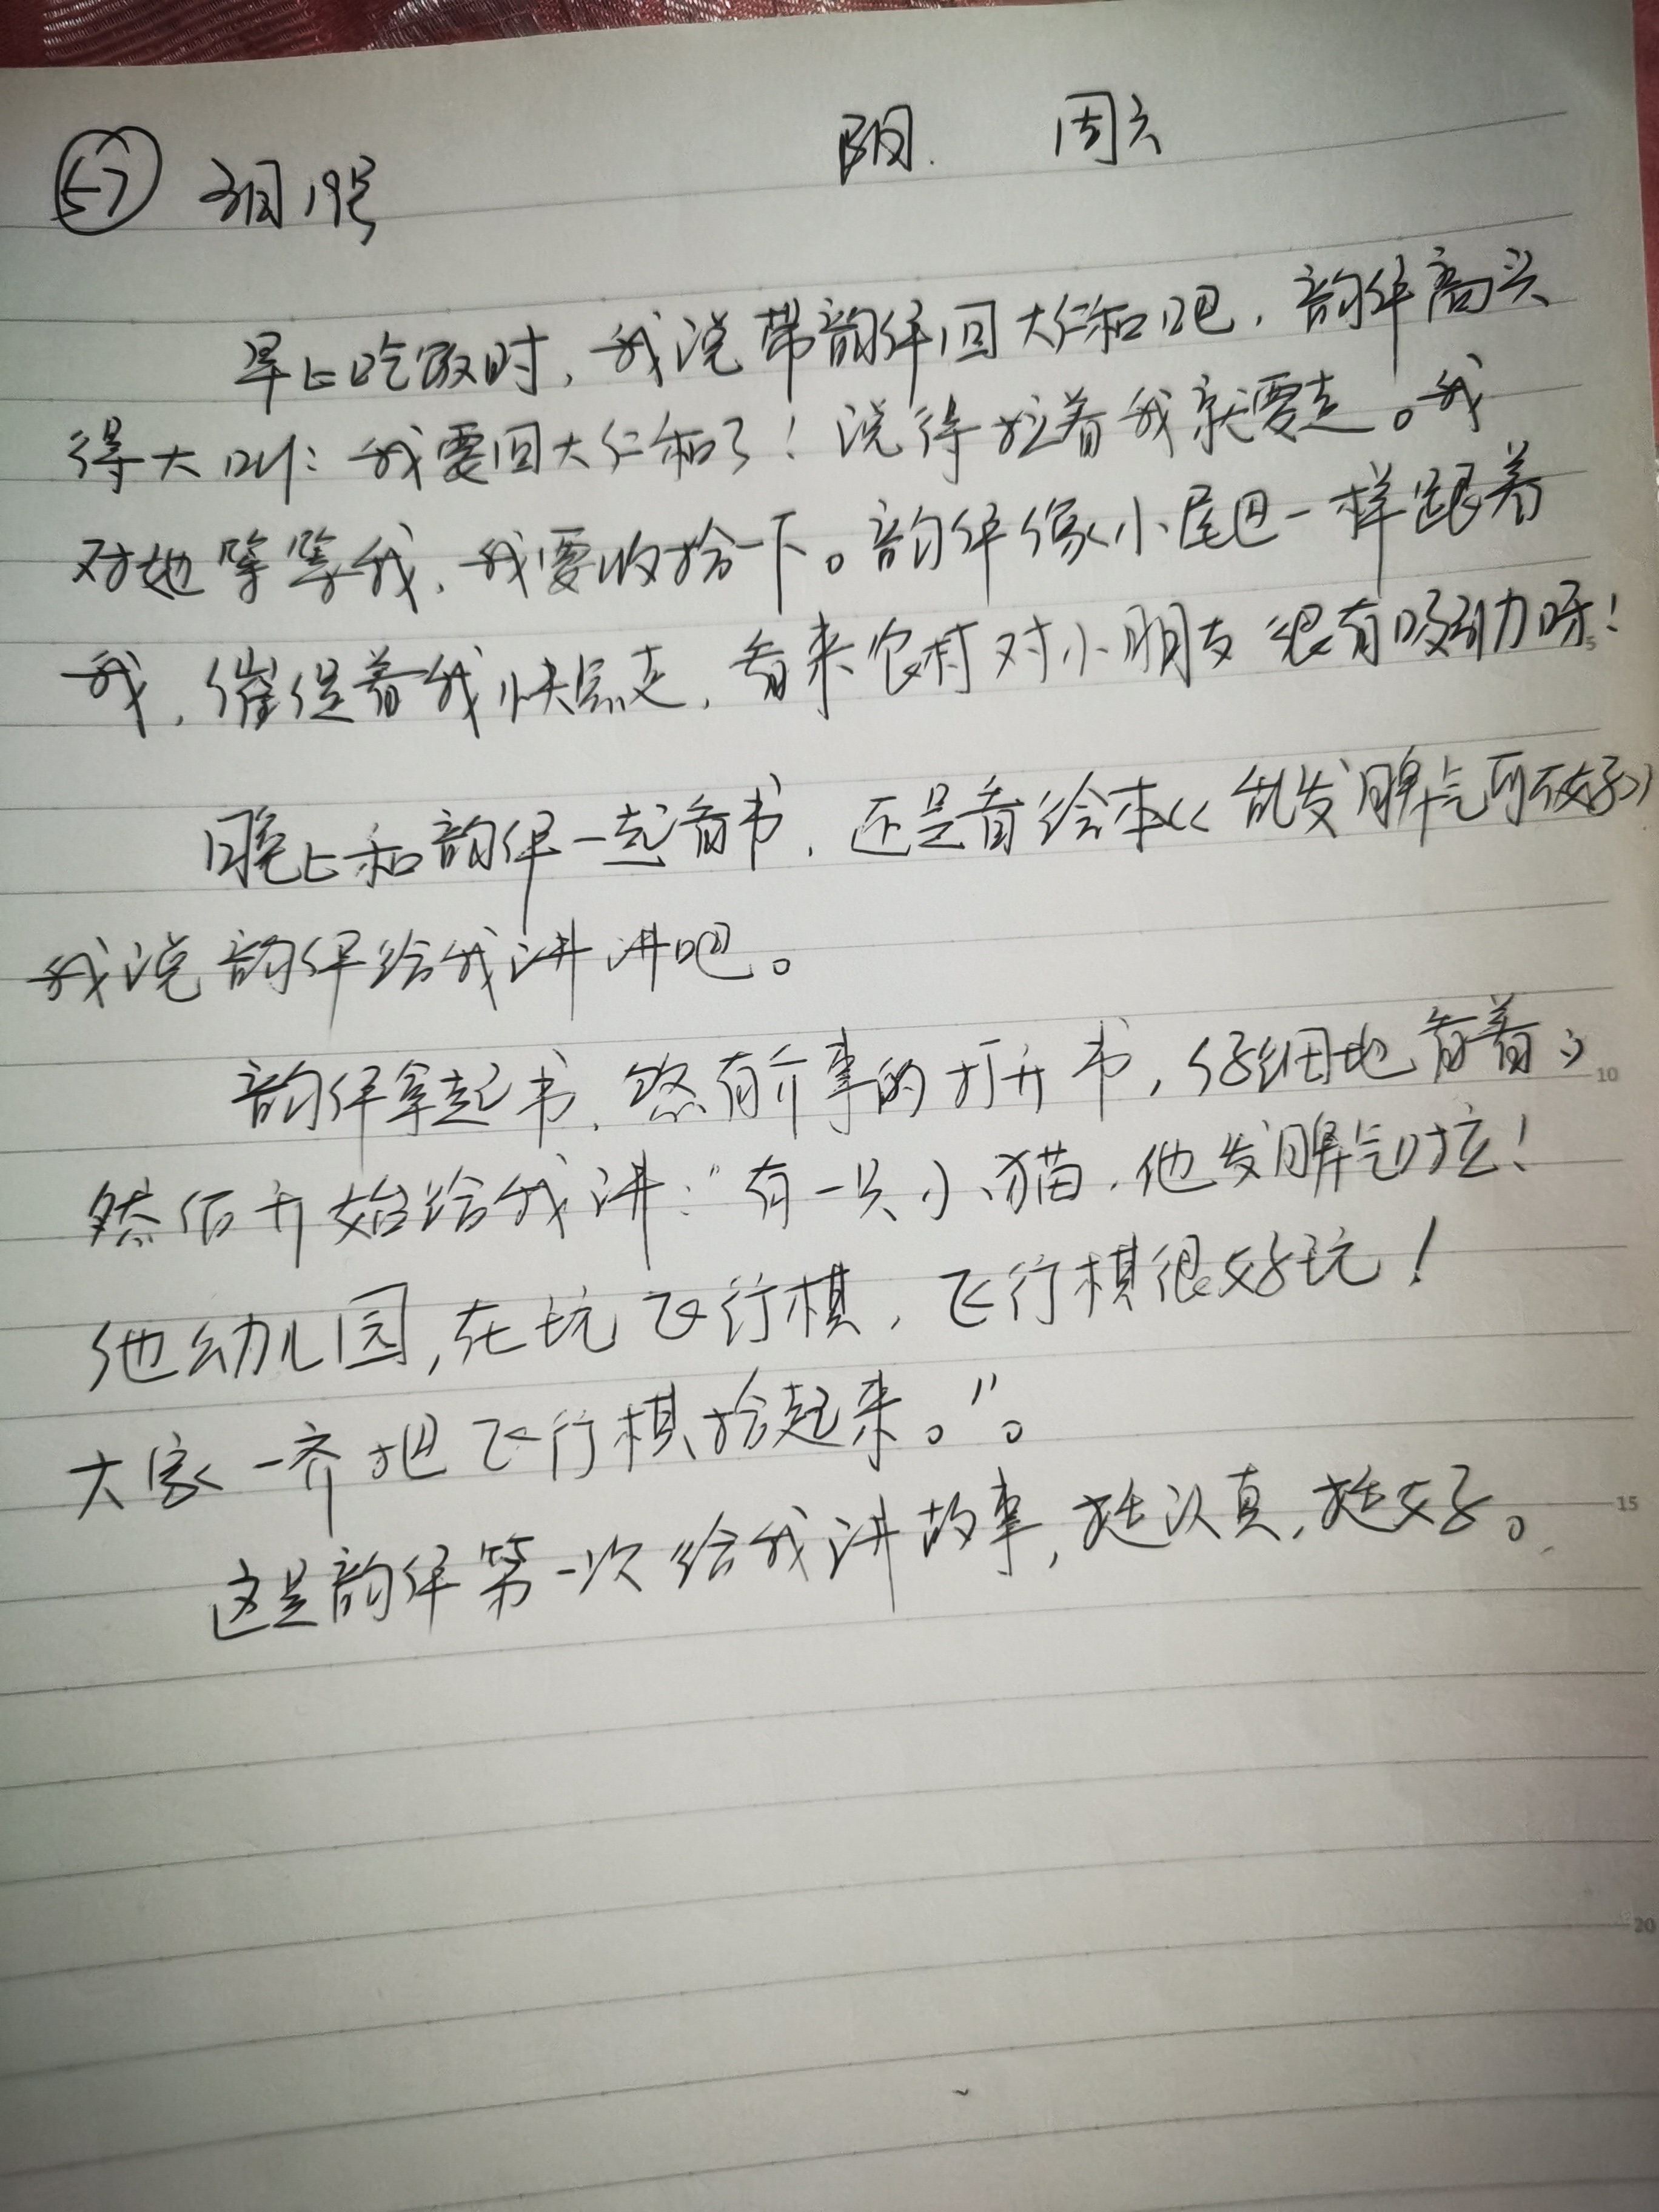 57 3月19号 阴. 周六
早上吃饭时,我说带韵伊回大仁和吧,韵伊高兴
得大叫:我要回大仁和了!说得拉着我就要走。我
对她等等我,我要收拾一下。韵伊像小尾巴一样跟着
我,催促着我快点走,看来农村对小朋友很有吸引力呀!
5
晚上和韵伊一起看书,还是看绘本《乱发脾气可不好》
我说韵伊给我讲讲吧。
韵伊拿起书,煞有介事的打开书,仔细地看着,
10
然后开始给我讲:"有一只小猫,他发脾气时拉!
他幼儿园,在坑飞行棋,飞行棋很好玩!
大家一齐把飞行棋拾起来。"。
这是韵伊第一次给我讲故事,挺认真,挺好。
15
20